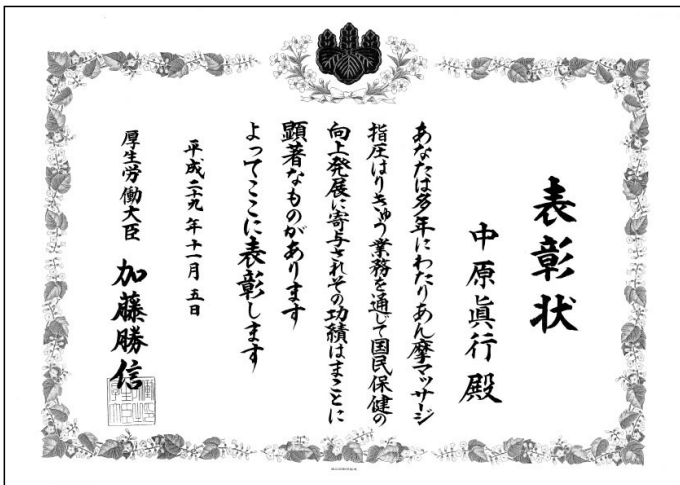 表彰状
中原眞行 殿
あなたは多年にわたりあん摩マッサージ
指圧はりきゅう業務を通じて国民保健の
向上発展に寄与されその功績はまことに
顕著なものがあります
よってここに表彰します
平成二十九年十一月五日
厚生労働大臣 加藤勝信